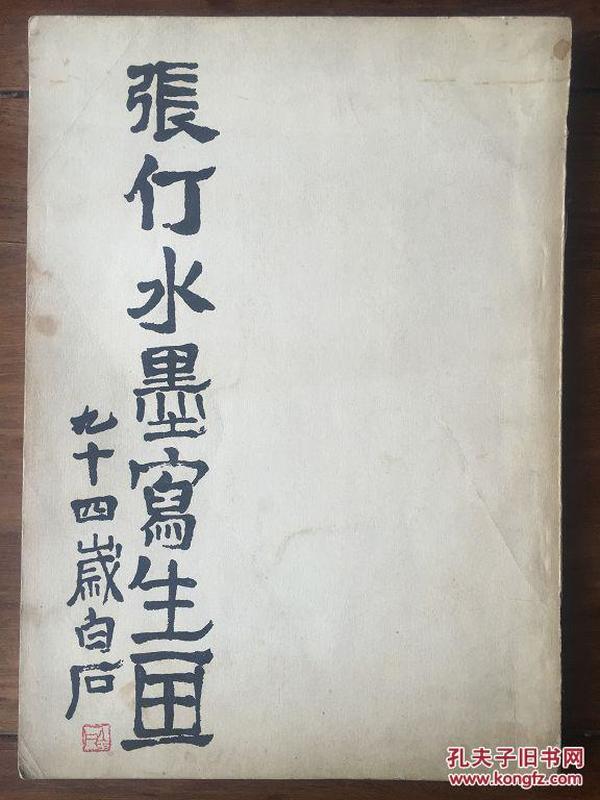 張仃水墨寫生画
九十四歲白石
孔夫子旧书网
www.kongfz.com